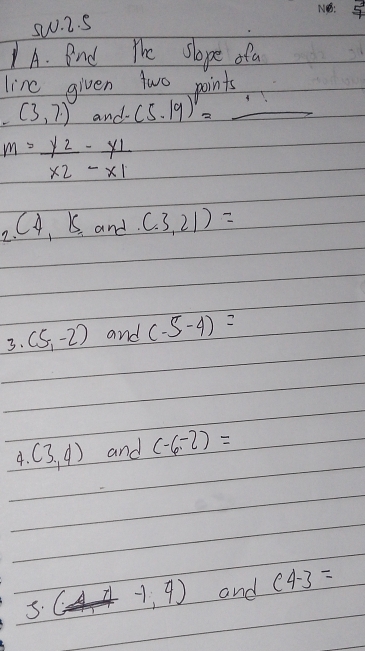 No:
SW. 2.5
1 A. find the slope of a
line given two points
. (3, 7) and (5. 19) =
m = y2 - y1
x2 - x1
2. (4, 15 and (.3, 21) =
3. (5, -2) and (-5-4) =
4. (3, 4) and (-6-2) =
5. ( -1, 4) and (4-3 =